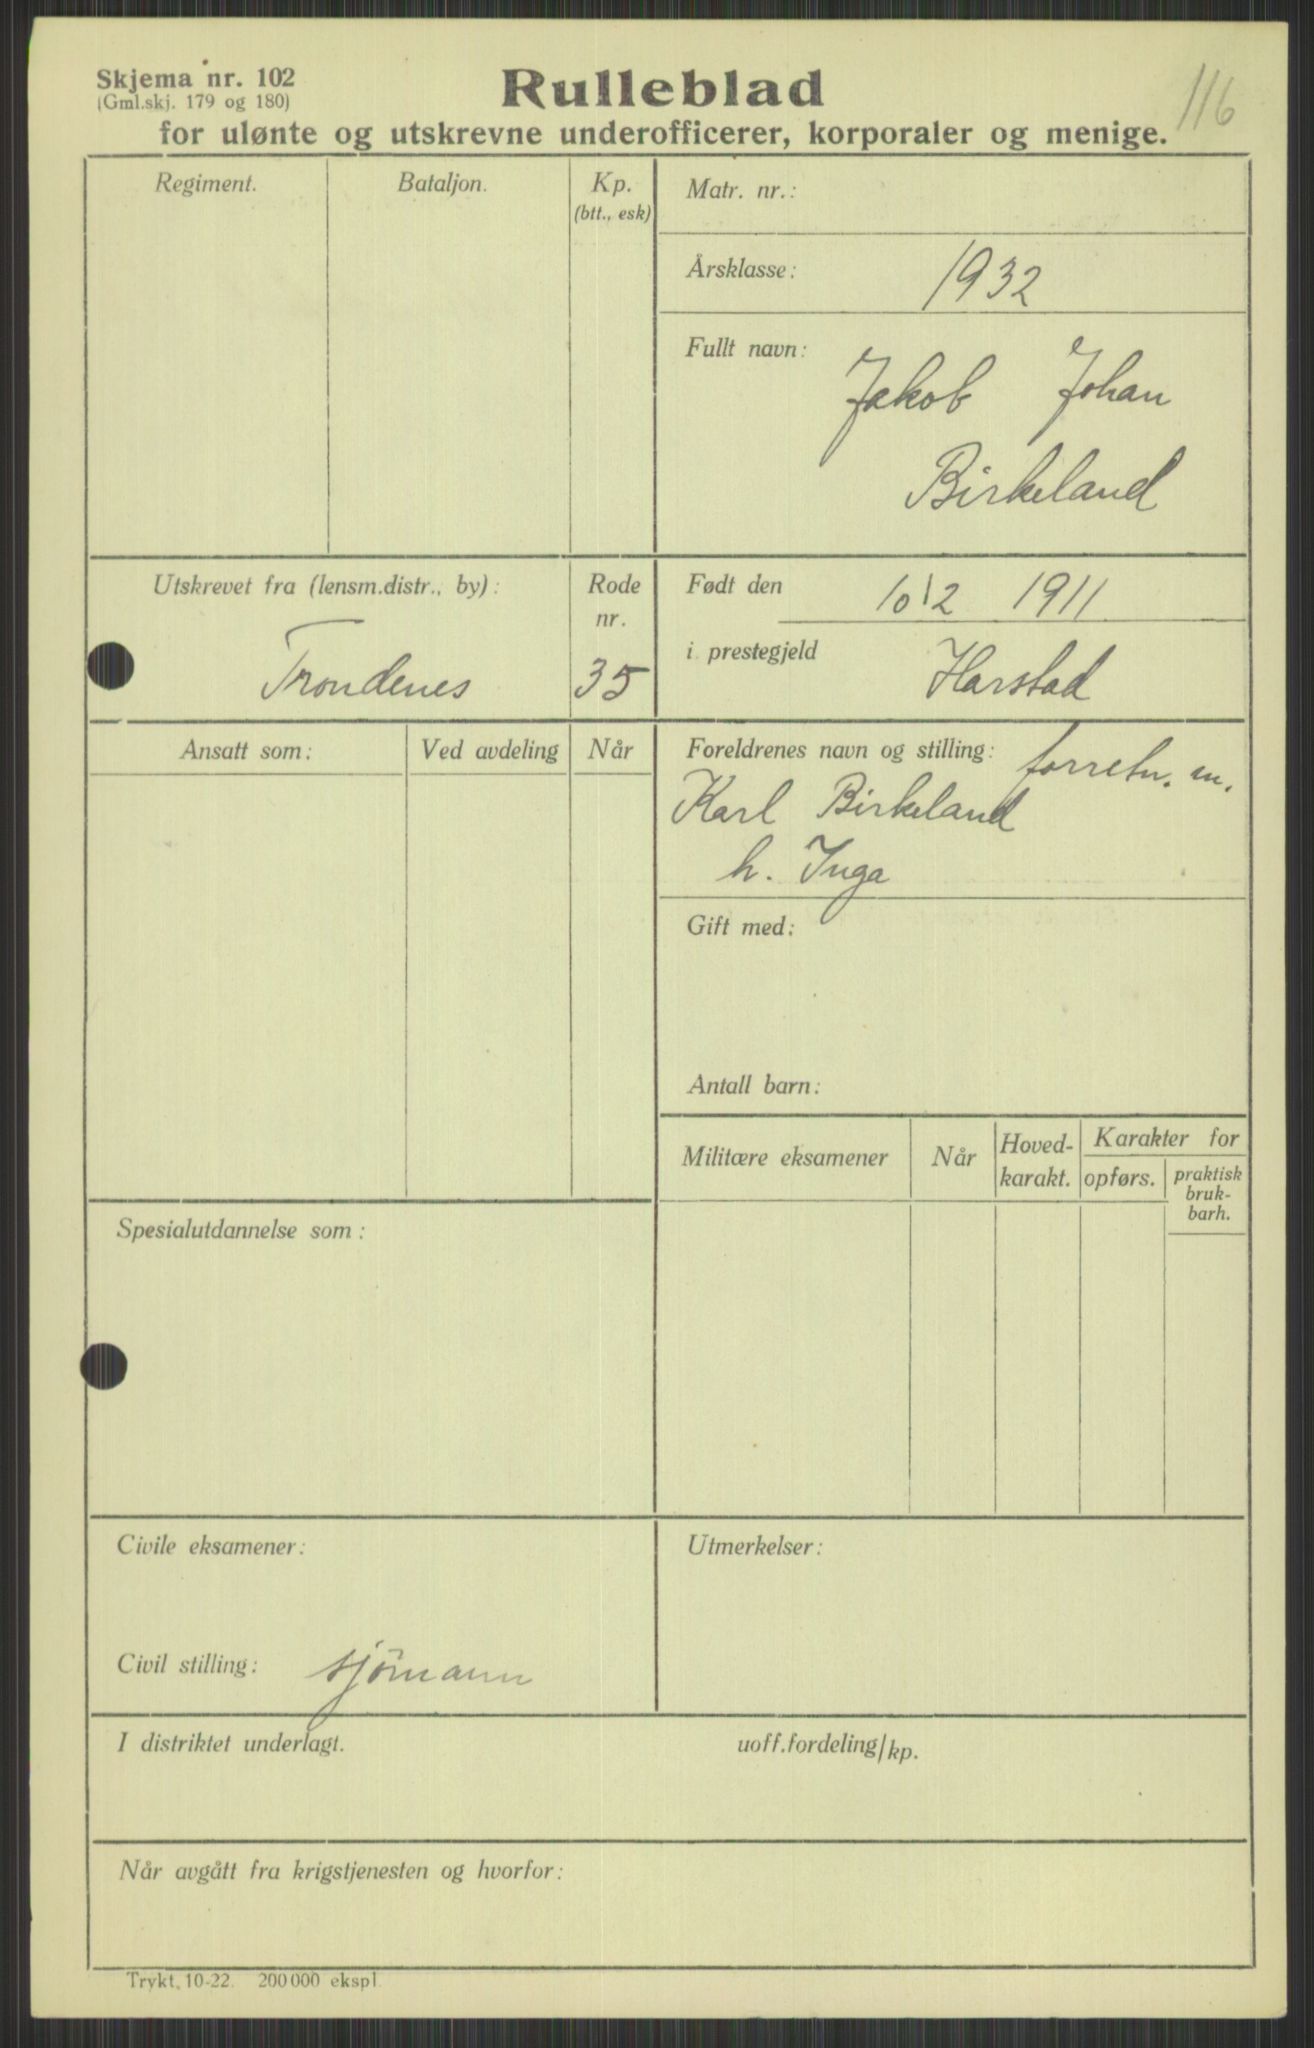 Skjema nr. 102
(Gml.skj. 179 og 180)
Rulleblad
116
for ulønte og utskrevne underofficerer, korporaler og menige.
Regiment.
Bataljon.
Kp.
(btt., esk)
Matr. nr.:
Årsklasse: 1932
Fullt navn: Jakob Johan
Birkeland
Utskrevet fra (lensm.distr., by):
Trondenes
Rode
nr.
35
Født den 10/2 1911
i prestegjeld Harstad
Ansatt som:
Ved avdeling
Når
Foreldrenes navn og stilling: forretn. m.
Karl Birkeland
h. Inga
Gift med:
Antall barn:
Militære eksamener
Når
Hoved-
karakt.
Karakter for
opførs.
praktisk
bruk-
barh.
Spesialutdannelse som:
Civile eksamener:
Utmerkelser:
Civil stilling: sjömann
I distriktet underlagt.
uoff.fordeling/kp.
Når avgått fra krigstjenesten og hvorfor:
Trykt, 10-22. 200 000 ekspl.